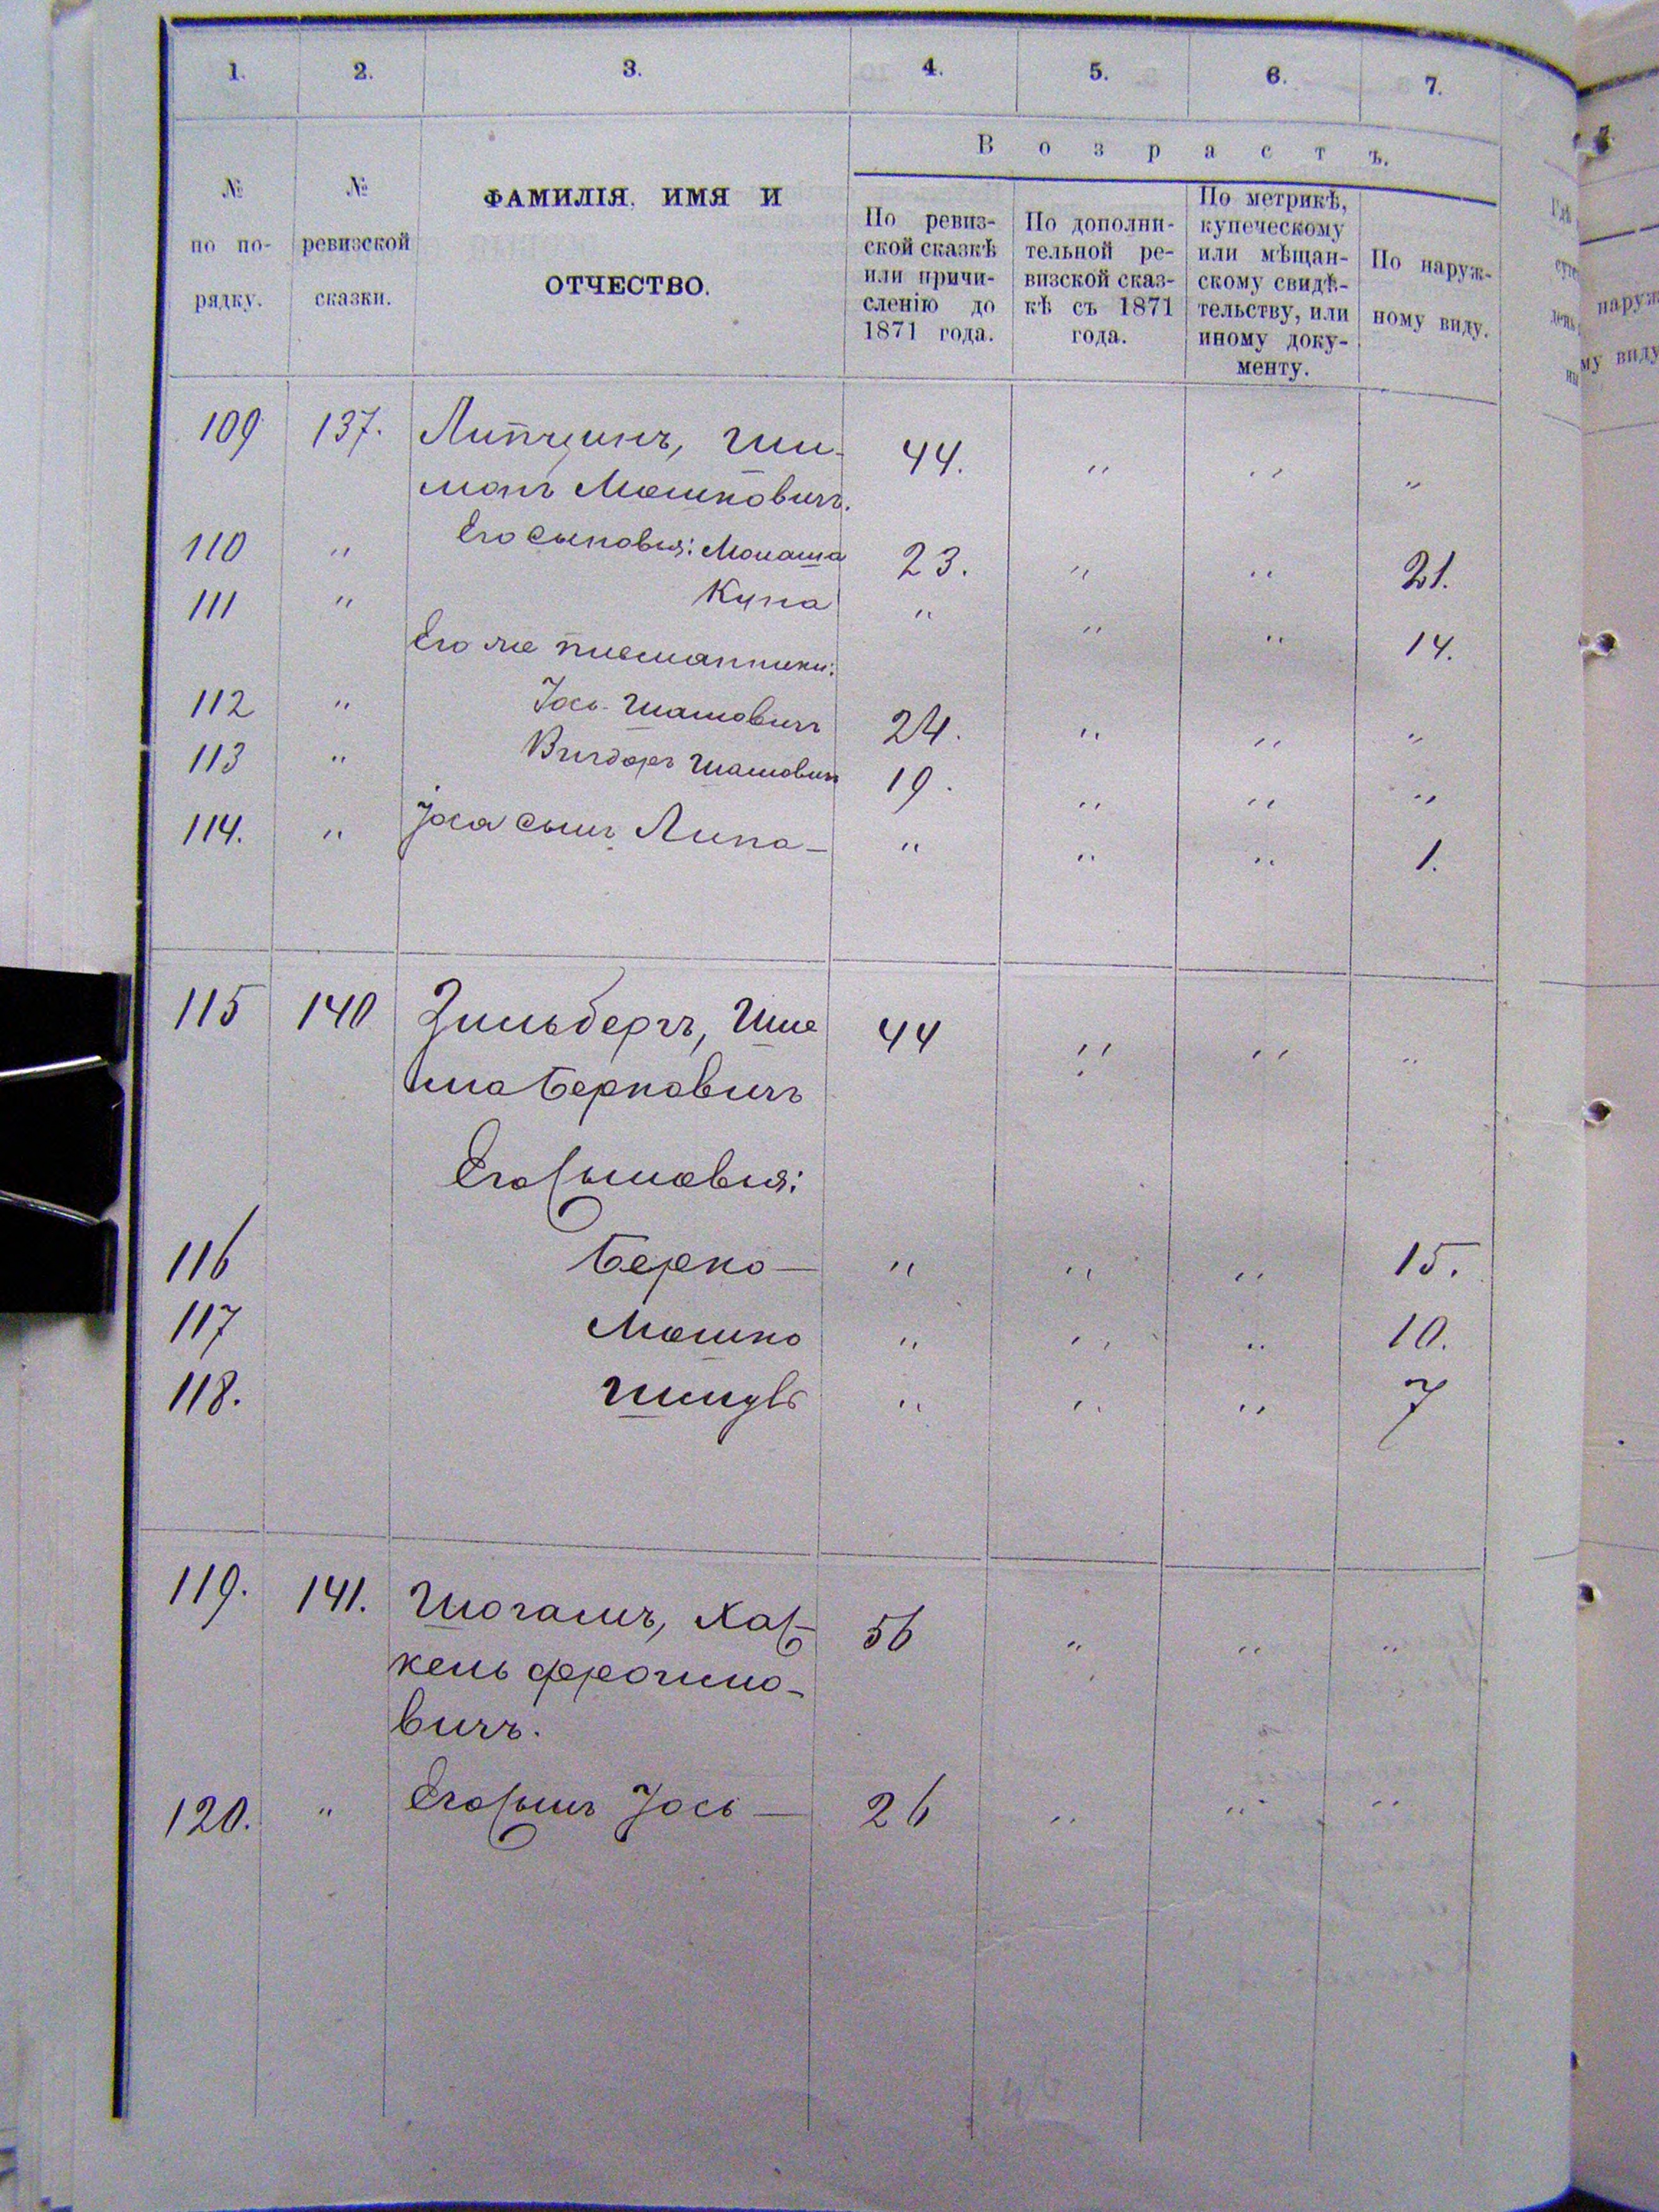 1. 2. 3. 4. 5. 6. 7.
№ по по-рядку.
№ ревизской сказки.
ФАМИЛІЯ, ИМЯ И ОТЧЕСТВО.
Возрастъ.
По ревиз-
ской сказкѣ
или причи-
сленію до
1871 года.
По дополни-
тельной ре-
визской сказ-
кѣ съ 1871
года.
По метрикѣ,
купеческому
или мѣщан-
скому свидѣ-
тельству, или
иному доку-
менту.
По наруж-
ному виду.
109 137. Липчинъ, Ши- 44. " " "
монъ Мошковичъ.
110 " Его сыновья: Монаша 23. " " 21.
111 " Купа " " " 14.
Его же племянники:
112 " Іось Шамовичъ 24. " " "
113 " Вигдоръ Шамовичъ 19. " " "
114. " Іоса сынъ Липа - " " " 1.
115 140 Зильбергъ, Шле 44 " " "
ма Берковичъ
Его сыновья:
116 Берко — " " " 15.
117 Мошко " " " 10.
118. " " " 7
119. 141. Хас- 56 " " "
кель
вичъ.
120. " Его сынъ Іось — 26 " " "
наруж
му виду